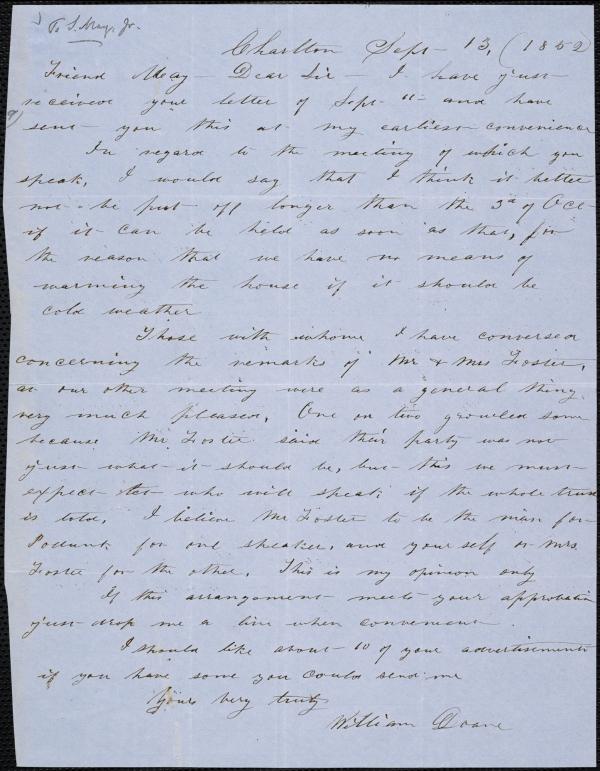 To S. May, Jr.
Charlton Sept 13, (1852)
Friend May - Dear Sir - I have just
received your letter of Sept 11 and have
sent you this at my earliest convenience
In regard to the meeting of which you
speak, I would say that I think it better
not be put off longer than the 3d of Oct
if it can be held as soon as that, for
the reason that we have no means of
warming the house if it should be
cold weather
Those with whome I have conversed
concerning the remarks of Mr & Mrs Foster,
at our other meeting were as a general thing
very much pleased, One or two growled some
because Mr. Foster said their party was not
just what it should be, but this we must
expect let who will speak if the whole truth
is told, I believe Mr Foster to be the man for
Podunk for one speaker, and your self or Mrs.
Foster for the other, This is my opinion only
If this arrangement meets your approbation
just drop me a line when convenient.
I should like about 10 of your advertisements
if you have some you could send me
Yours very truly
William Doane